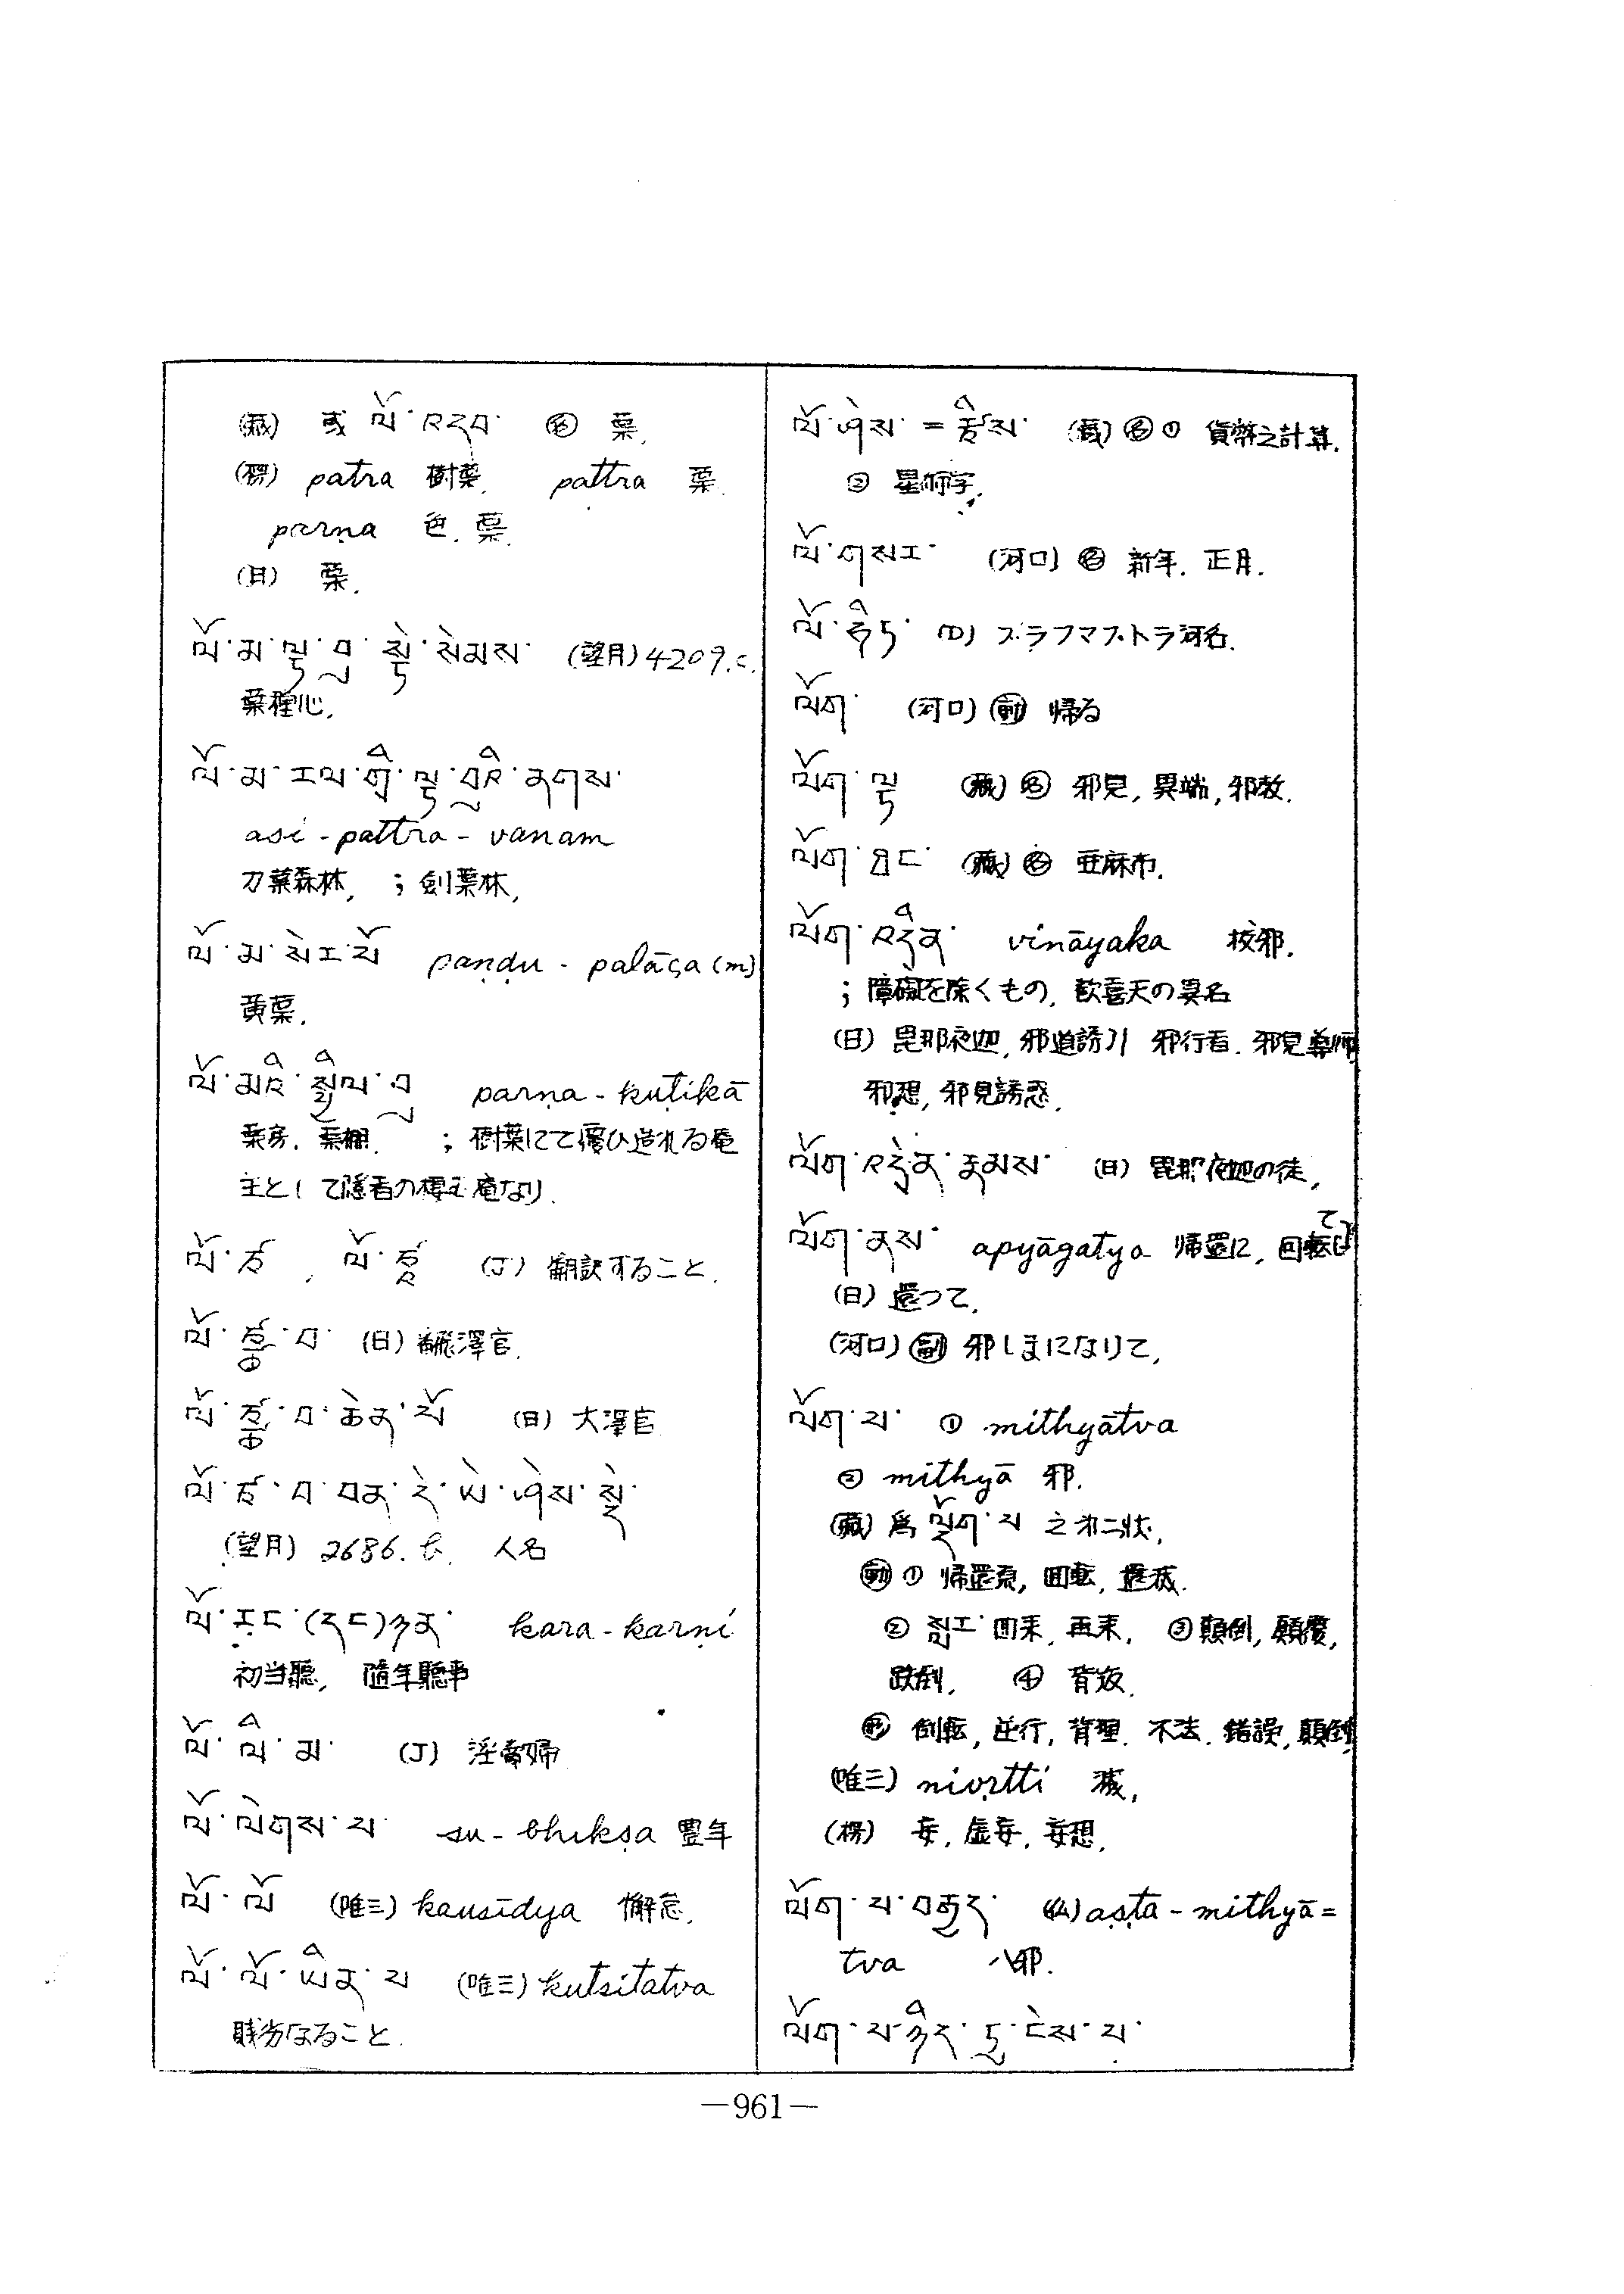 (藏) 或 ལོ་འདབ་ ㊔ 葉.
(楞) patra 樹葉. pattra 葉.
parṇa 色. 葉.
(日) 葉.
ལོ་མ་ལྟ་བུ་སྡེ་སེམས་ (望月) 4209.c.
葉種心.
ལོ་མ་རལ་གྲི་ལྟ་བུའི་ནགས་
asi-pattra-vanam
刀葉森林, ; 劍葉林,
ལོ་མ་སེར་པོ paṇḍu-palāça (m)
黄葉.
ལོ་མའི་སྤྱིལ་བུ parṇa-kuṭikā
葉房. 葉棚. ; 樹葉にて優ひ造れる庵
主として隱者の棲む庵なり.
ལོ་ཙ , ལོ་ཙྪ (J) 翻訳すること.
ལོ་ཙཱ་བ (日) 飜澤官.
ལོ་ཙཱ་བ་ཆེན་པོ (日) 大澤官
ལོ་ཙ་བ་བན་དེ་ཡེ་ཤེས་སྡེ་
(望月) 2686.b. 人名
ལོ་རང་(དང་)ཉན་ kara-karṇi
初当聽, 隨年聽事
ལོ་ལི་མ་ (J) 淫奔婦
ལོ་ལེགས་པ su-bhikṣa 豊年
ལོ་ལོ (唯三) kausīdya 懈怠.
ལོ་ལོ་ཡིན་པ (唯三) kutsitatva
賎劣なること.
ལོ་ཤེས་ = རྩིས་ (藏) ㊔ ① 貨幣之計算.
② 星術字.
ལོ་གསར་ (河口) ㊔ 新年. 正月.
ལོ་ཧི་ཏ་ (D) ブラフマプトラ河名.
ལོག་ (河口) ㊗ 帰る
ལོག་ལྟ (藏) ㊔ 邪見, 異端, 邪教.
ལོག་ཐང་ (藏) ㊔ 亜麻布.
ལོག་འདྲེན་ vināyaka 校邪.
; 障礙を除くもの, 歓喜天の異名
(日) 毘那夜迦, 邪道誘引 邪行者. 邪見導師
邪想, 邪見誘惑.
ལོག་འདྲེན་རྣམས་ (日) 毘那夜迦の徒,
ལོག་ནས་ apyāgatya 帰還に, 回転して
(日) 還つて.
(河口) 副 邪しまになりて,
ལོག་པ་ ① mithyātva
② mithyā 邪.
(藏) 爲 ལྡོག་པ 之オ二狀,
動 ① 帰還, 回転, 還滅.
② སླར་ 回来, 再来, ③ 顛倒, 顛覆,
跌倒, ④ 背叛.
形 倒転, 逆行, 背理. 不法. 錯誤, 顛倒
(唯三) nivṛtti 滅,
(楞) 妄, 虚妄, 妄想.
ལོག་པ་བརྒྱད་ (仏) aṣṭa-mithyā=
tva 八邪.
ལོག་པ་ཉིད་དུ་ངེས་པ་
—961—